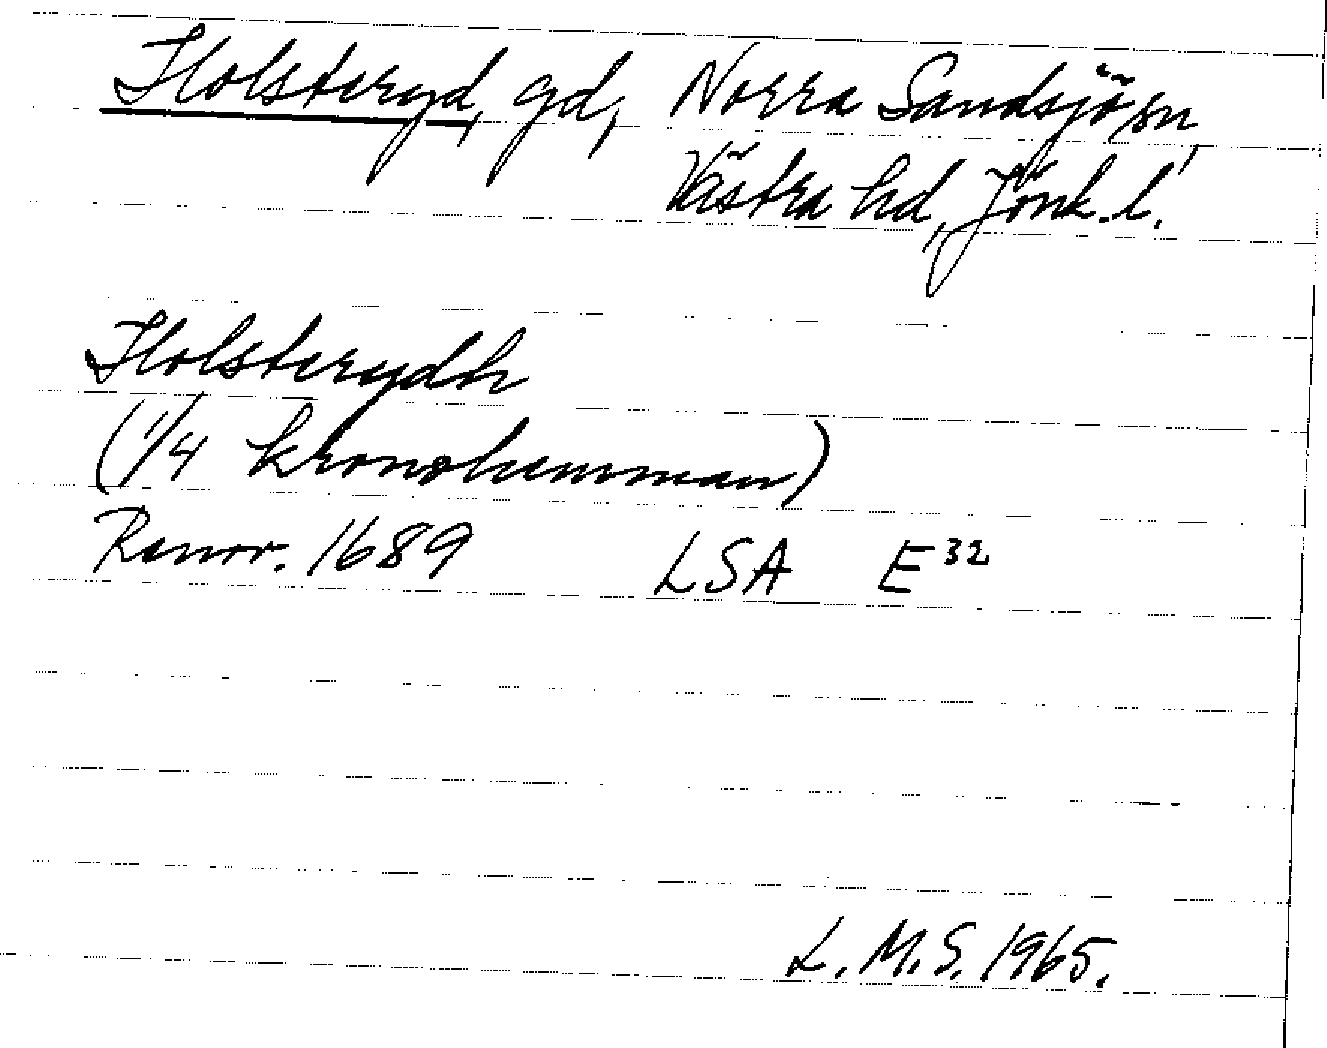 Holsteryd, gd, Norra Sandsjö sn,
Västra hd, Jönk. l.
Holsterydh
(1/4 kronohemman)
Renov. 1689 LSA E32
L.M.S. 1965.